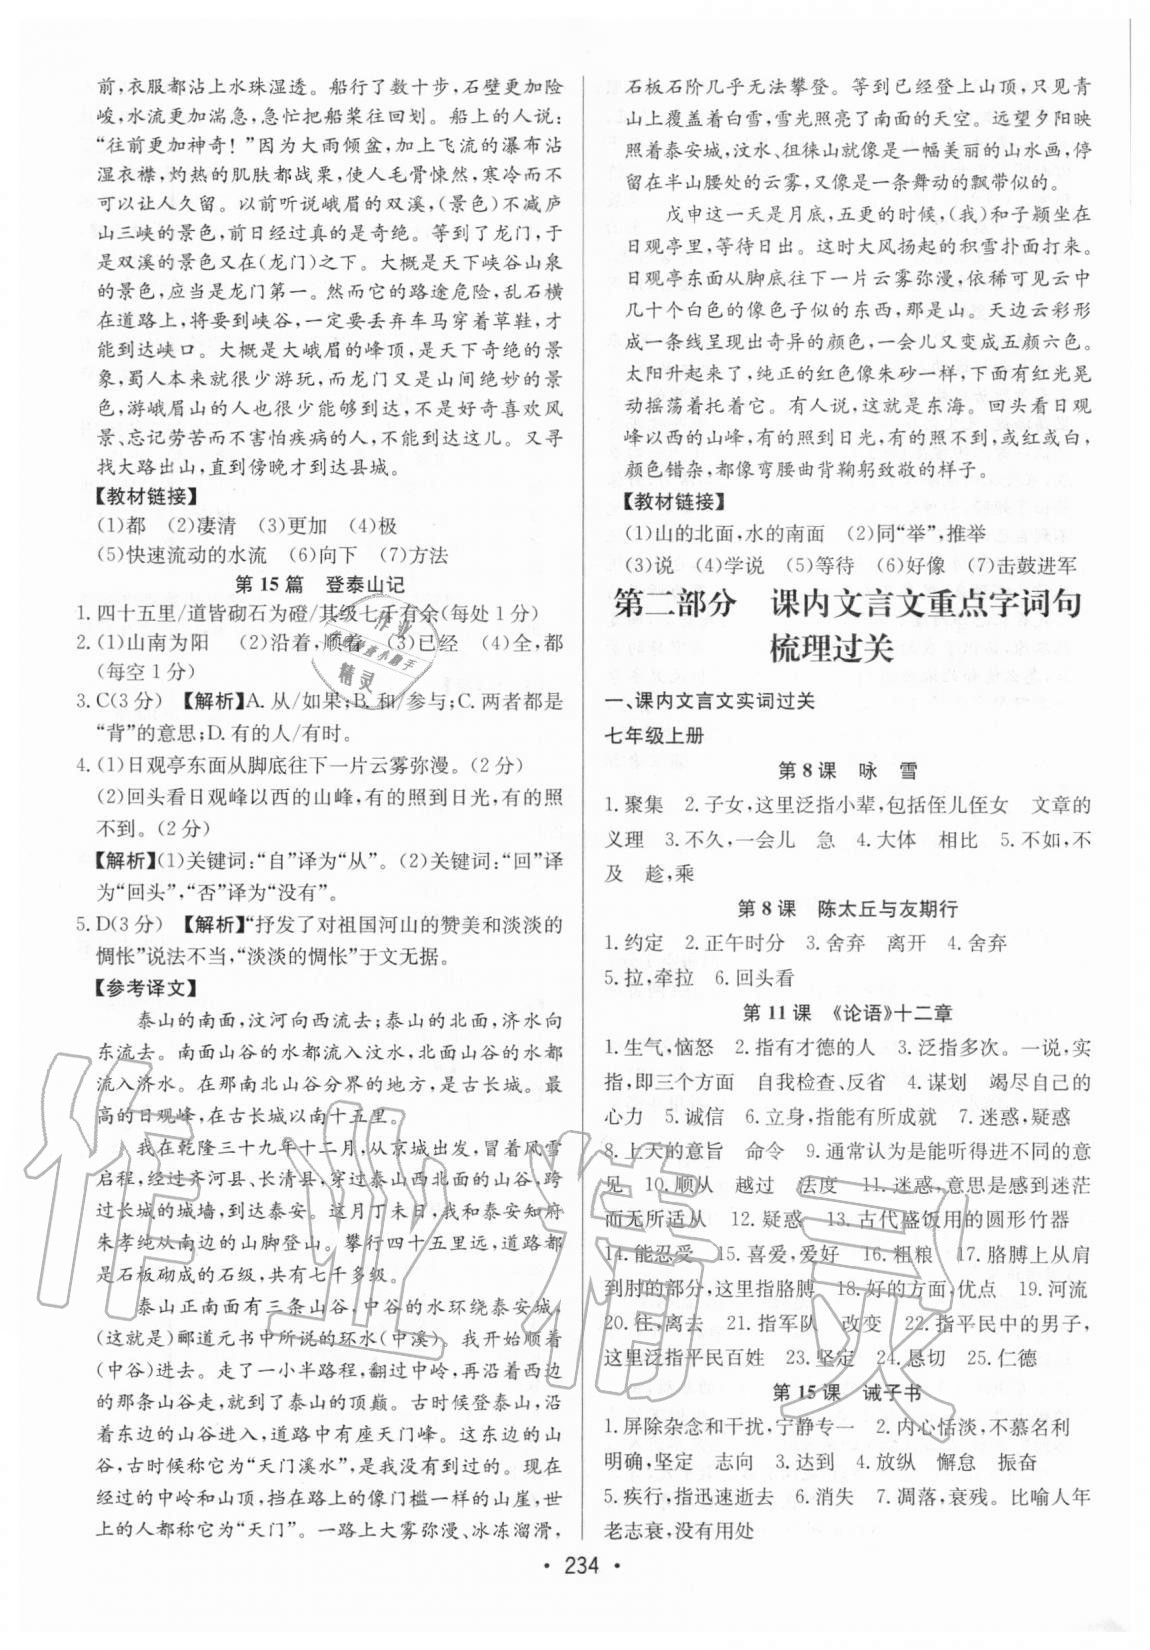 前,衣服都沾上水珠湿透。船行了数十步,石壁更加险
峻,水流更加湍急,急忙把船桨往回划。船上的人说:
“往前更加神奇！”因为大雨倾盆,加上飞流的瀑布沾
湿衣襟,灼热的肌肤都战栗,使人毛骨悚然,寒冷而不
可以让人久留。以前听说峨眉的双溪,(景色)不减庐
山三峡的景色,前日经过真的是奇绝。等到了龙门,于
是双溪的景色又在(龙门)之下。大概是天下峡谷山泉
的景色,应当是龙门第一。然而它的路途危险,乱石横
在道路上,将要到峡谷,一定要丢弃车马穿着草鞋,才
能到达峡口。大概是大峨眉的峰顶,是天下奇绝的景
象,蜀人本来就很少游玩,而龙门又是山间绝妙的景
色,游峨眉山的人也很少能到达,不是好奇喜欢风
景、忘记劳苦而不害怕疾病的人,不能到达这儿。又寻
找大路出山,直到傍晚才到达县城。
【教材链接】
(1)都　(2)凄清　(3)更加　(4)极
(5)快速流动的水流　(6)向下　(7)方法
第 15 篇　登泰山记
1. 四十五里/道皆砌石为磴/其级七千有余(每处 1 分)
2. (1)山南为阳　(2)沿着,顺着　(3)已经　(4)全,都
(每空 1 分)
3. C(3 分)　【解析】A. 从/如果;B. 和/参与;C. 两者都是
“背”的意思;D. 有的人/有时。
4. (1)日观亭东面从脚底往下一片云雾弥漫。(2 分)
(2)回头看日观峰以西的山峰,有的照到日光,有的照
不到。(2 分)
【解析】(1)关键词:“自”译为“从”。(2)关键词:“回”译
为“回头”,“否”译为“没有”。
5. D(3 分)　【解析】“抒发了对祖国河山的赞美和淡淡的
惆怅”说法不当,“淡淡的惆怅”于文无据。
【参考译文】
泰山的南面,汶河向西流去;泰山的北面,济水向
东流去。南面山谷的水都流入汶水,北面山谷的水都
流入济水。在那南北山谷分界的地方,是古长城。最
高的日观峰,在古长城以南十五里。
我在乾隆三十九年十二月,从京城出发,冒着风雪
启程,经过齐河县、长清县,穿过泰山西北面的山谷,跨
过长城的城墙,到达泰安。这月丁未日,我和泰安知府
朱孝纯从南边的山脚登山。攀行四十五里远,道路都
是石板砌成的石级,共有七千多级。
泰山正南面有三条山谷,中谷的水环绕泰安城,
(这就是)郦道元书中所说的环水(中溪)。我开始顺着
(中谷)进去。走了一小半路程,翻过中岭,再沿着西边
的那条山谷走,就到了泰山的顶巅。古时候登泰山,沿
着东边的山谷进入,道路中有座天门峰。这东边的山
谷,古时候称它为“天门溪水”,是我没有到过的。现在
经过的中岭和山顶,挡在路上的像门槛一样的山崖,世
上的人都称它为“天门”。一路上大雾弥漫、冰冻溜滑,
石板石阶几乎无法攀登。等到已经登上山顶,只见青
山上覆盖着白雪,雪光照亮了南面的天空。远望夕阳映
照着泰安城,汶水、徂徕山就像是一幅美丽的山水画,停
留在半山腰处的云雾,又像是一条舞动的飘带似的。
戊申这一天是月底,五更的时候,(我)和子颍坐在
日观亭里,等待日出。这时大风扬起的积雪扑面打来。
日观亭东面从脚底往下一片云雾弥漫,依稀可见云中
几十个白色的像色子似的东西,那是山。天边云彩形
成一条线呈现出奇异的颜色,一会儿又变成五颜六色。
太阳升起来了,纯正的红色像朱砂一样,下面有红光晃
动摇荡着托着它。有人说,这就是东海。回头看日观
峰以西的山峰,有的照到日光,有的照不到,或红或白,
颜色错杂,都像弯腰曲背鞠躬致敬的样子。
【教材链接】
(1)山的北面,水的南面　(2)同“举”,推举
(3)说　(4)学说　(5)等待　(6)好像　(7)击鼓进军
第二部分　课内文言文重点字词句
梳理过关
一、课内文言文实词过关
七年级上册
第 8 课　咏　雪
1. 聚集　2. 子女,这里泛指小辈,包括侄儿侄女　文章的
义理　3. 不久,一会儿　急　4. 大体　相比　5. 不如,不
及　趁,乘
第 8 课　陈太丘与友期行
1. 约定　2. 正午时分　3. 舍弃　离开　4. 舍弃
5. 拉,牵拉　6. 回头看
第 11 课　《论语》十二章
1. 生气,恼怒　2. 指有才德的人　3. 泛指多次。一说,实
指,即三个方面　自我检查、反省　4. 谋划　竭尽自己的
心力　5. 诚信　6. 立身,指能有所成就　7. 迷惑,疑惑
8. 上天的意旨　命令　9. 通常认为是能听得进不同的意
见　10. 顺从　越过　法度　11. 迷惑,意思是感到迷茫
而无所适从　12. 疑惑　13. 古代盛饭用的圆形竹器
14. 能忍受　15. 喜爱,爱好　16. 粗粮　17. 胳膊上从肩
到肘的部分,这里指胳膊　18. 好的方面,优点　19. 河流
20. 往,离去　21. 指军队　改变　22. 指平民中的男子,
这里泛指平民百姓　23. 坚定　24. 恳切　25. 仁德
第 15 课　诫子书
1. 屏除杂念和干扰,宁静专一　2. 内心恬淡,不慕名利
明确,坚定　志向　3. 达到　4. 放纵　懈怠　振奋
5. 疾行,指迅速逝去　6. 消失　7. 凋落,衰残。比喻人年
老志衰,没有用处
· 234 ·
作业精灵